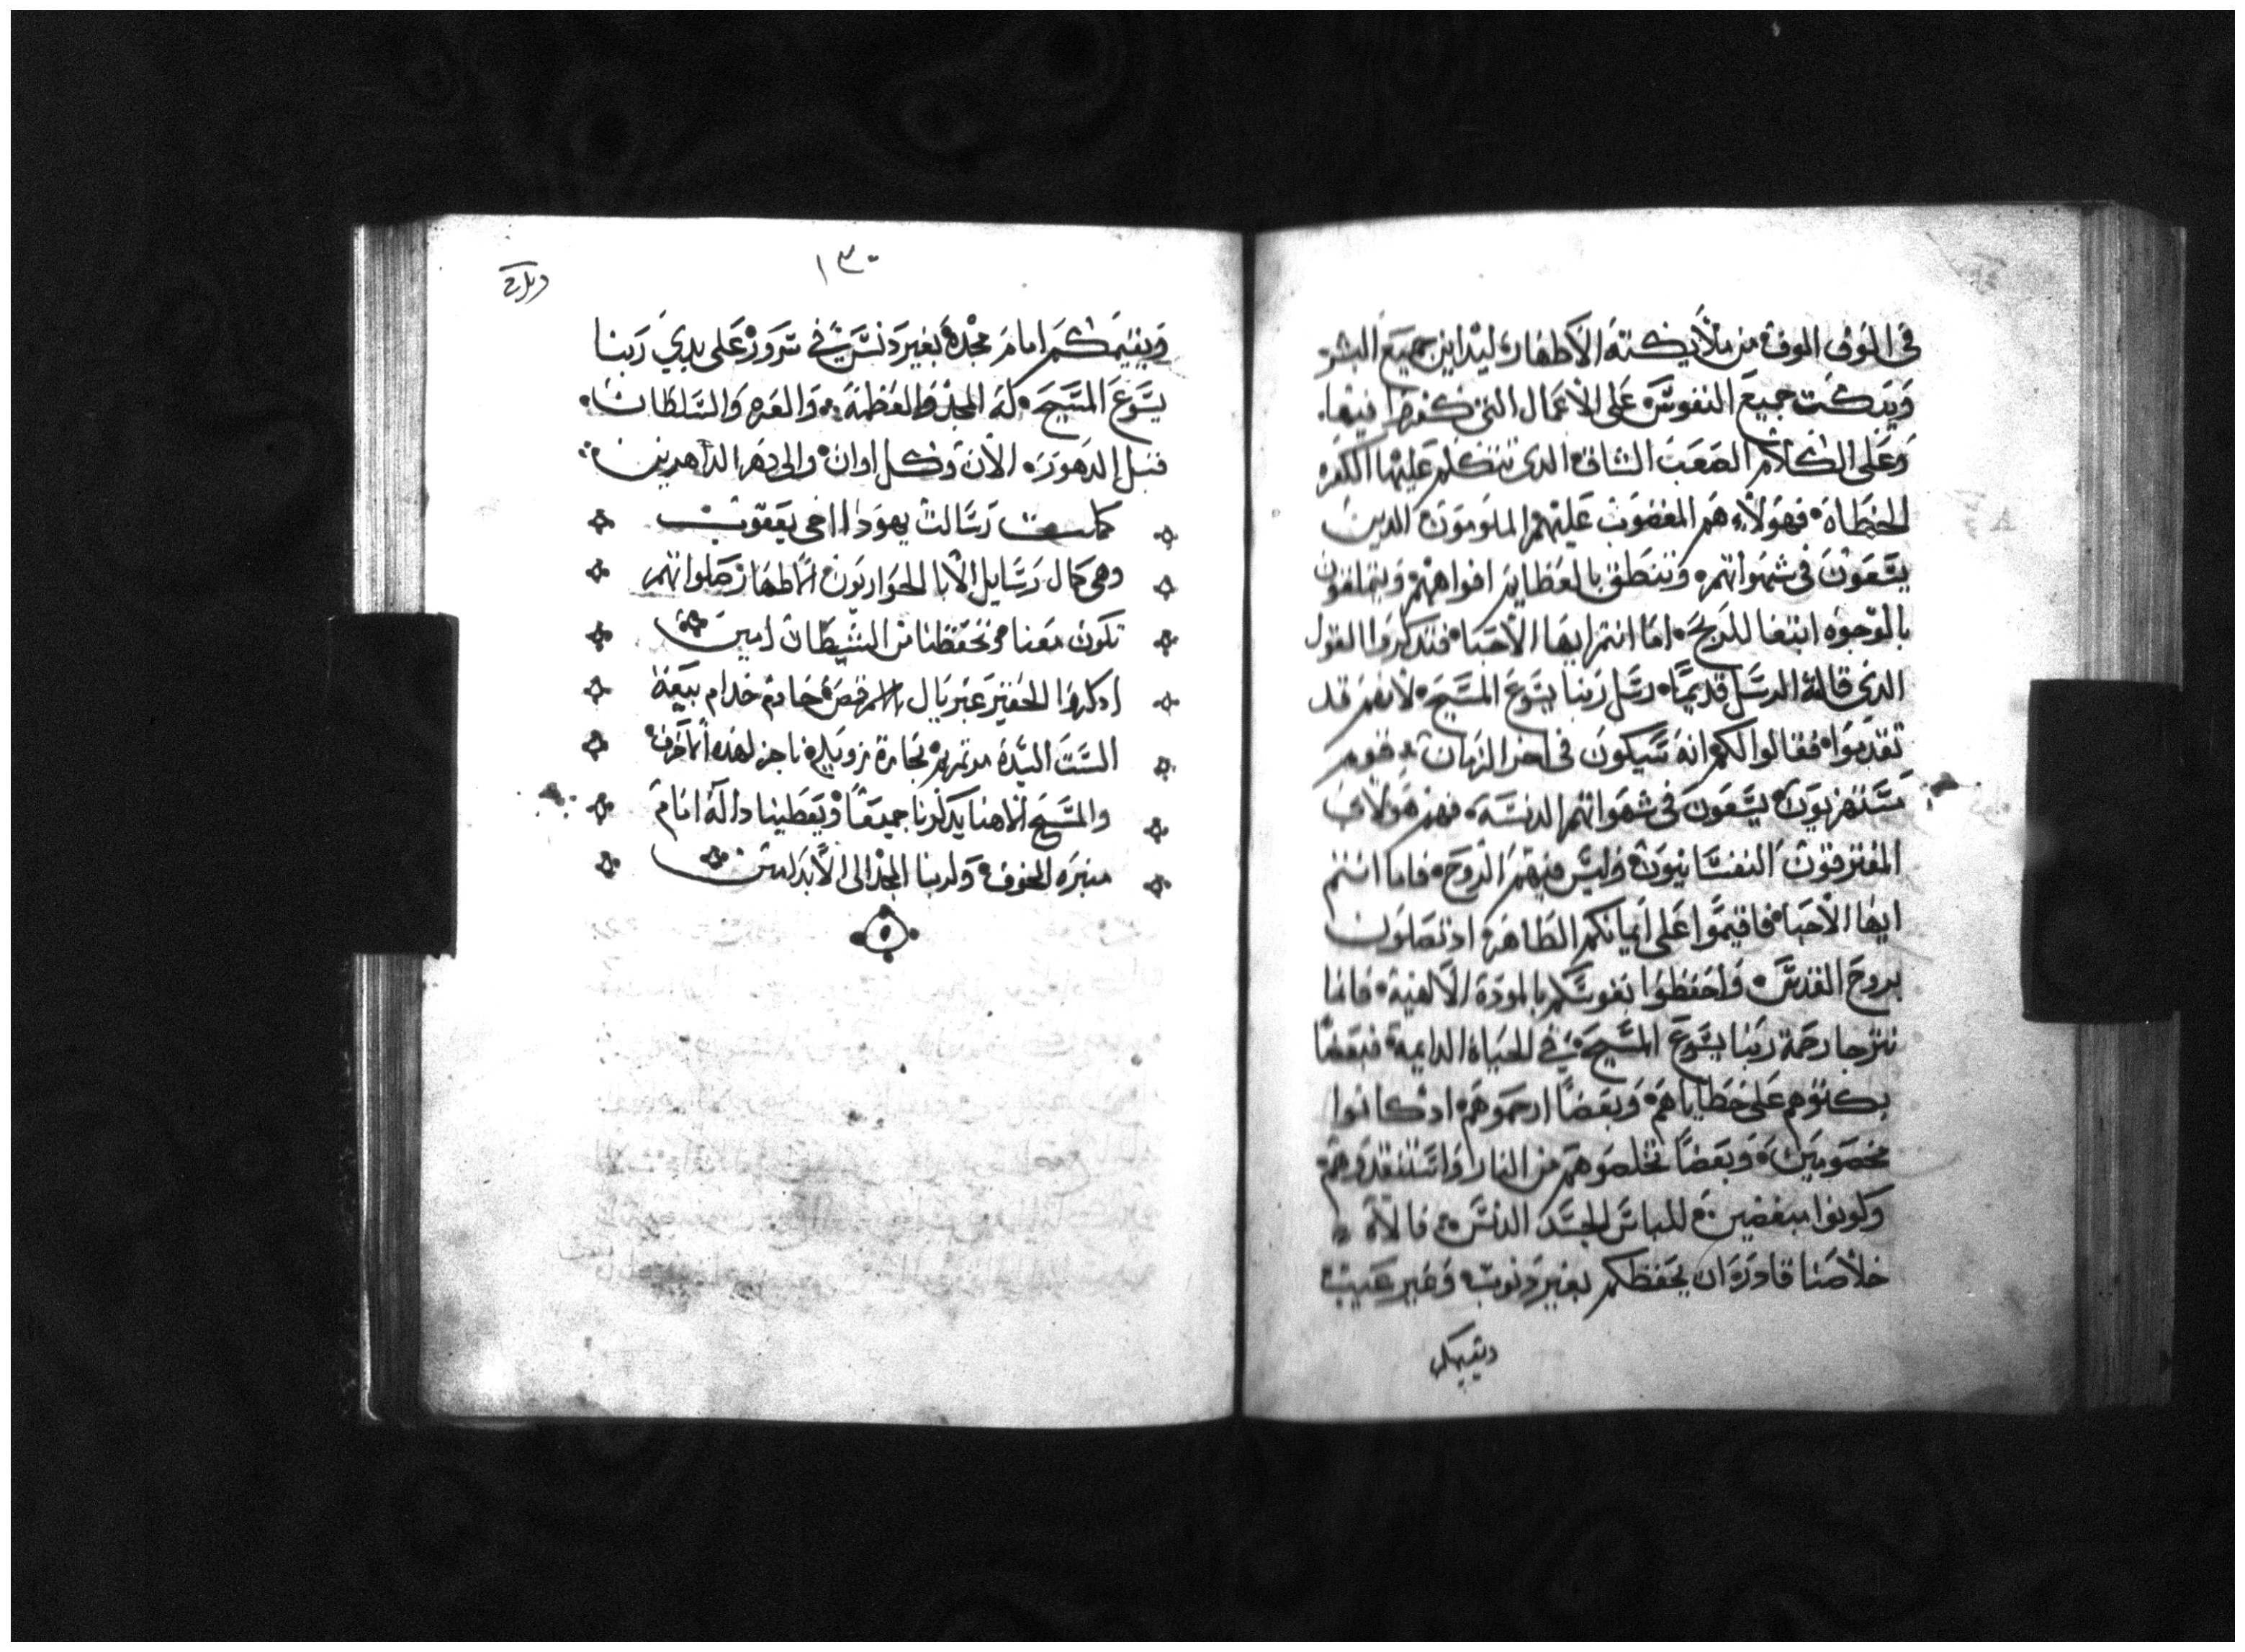 في الوف الوفه من ملايكته الاطهار، ليداين جميع البشر
ويبكت جميع النفوس على الاعمال التي كفروا فيها.
وعلى الكلام الصعب الشاق الدي تتكلم عليها الكفره
الخطاه فهولاء هم المغضوب عليهم الملومون الدين
يسعون في شهواتهم وتنطق بالعظايم افواههم ويتملقون
بالوجوه ابتغا للربح اما انتم ايها الاحبا فتدكروا القول
الدي قاله الرسل قديمًا رسل ربنا يسوع المسيح لانهم قد
تقدموا فقالوا لكم انه سيكون في اخر الزمان قوم
يستهزيون يسعون في شهواتهم الدنسه فهم هولاي
المفترقون النفسانيون وليس فيهم الروح فاما انتم
ايها الاحبا فاقيموا على ايمانكم الطاهر اد تصلون
بروح القدس واحفظوا نفوسكم بالمودة الالهية فاننا
نترجا رحمة ربنا يسوع المسيح في الحياة الدايمة فبعضًا
بكتوهم على خطاياهم وبعضًا ارحموهم ادا كانوا
مخصومين وبعضًا تخلصوهم من النار واستنقدوهم
وكونوا مبغضين للباس الجسد الدنس فالاله
خلاصنا قادر ان يحفظكم بغير دنوب وغير عيب
ويقيمكم
١٣٠
ويقيمكم امام مجده بغير دنس في سرور على يدي ربنا
يسوع المسيح له المجد والعظمة والعزه والسلطان.
قبل الدهور الان وكل اوان والى دهر الداهرين
كملت رسالت يهودا اخي يعقوب
وهي كمال رسايل الابا الحواريون الاطهار صلواتهم
تكون معنا وتحفظنا من الشيطان امين
ادكروا الحقير غبريال خادم خدام بيعة
الست السيدة بحارة زويله
والمسيح الاهنا يدكرنا جميعًا ويعطينا دالة امام
منبره المخوف ولربنا المجد الى الابد امين